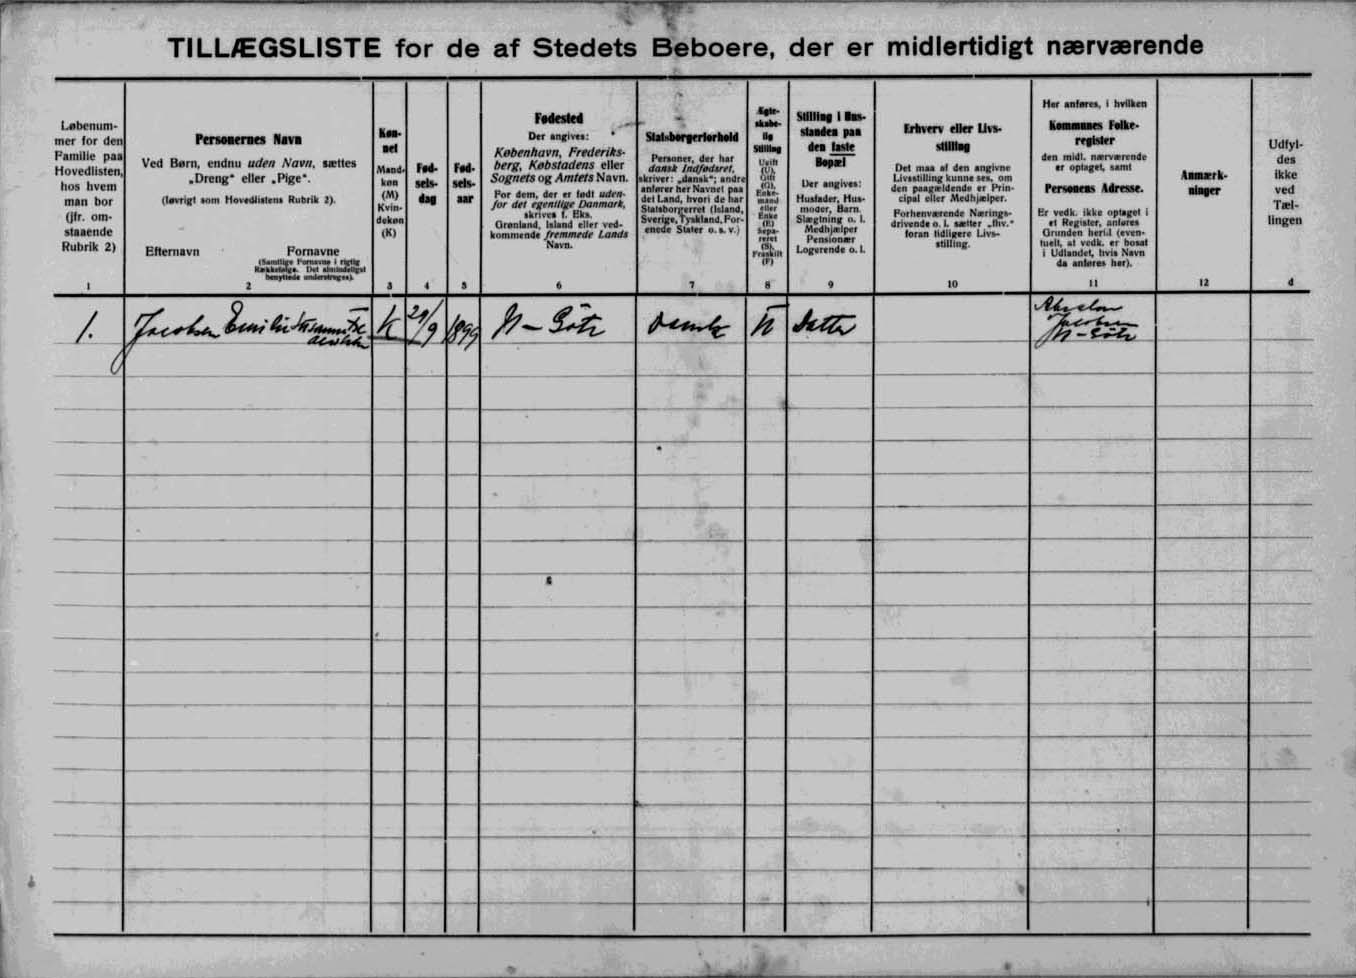 TILLÆGSLISTE for de af Stedets Beboere, der er midlertidigt nærværende
Løbenum-
mer for den
Familie paa
Hovedlisten,
hos hvem
man bor
(jfr. om-
staaende
Rubrik 2)
1
Personernes Navn
Ved Børn, endnu uden Navn, sættes
„Dreng“ eller „Pige“.
(Iøvrigt som Hovedlistens Rubrik 2).
Efternavn Fornavne
(Samtlige Fornavne i rigtig
Rækkefølge. Det almindeligst
benyttede understreges).
2
Køn-
net
Mand-
køn
(M)
Kvin-
dekøn
(K)
3
Fød-
sels-
dag
4
Fød-
sels-
aar
5
Fødested
Der angives:
København, Frederiks-
berg, Købstadens eller
Sognets og Amtets Navn.
For dem, der er født uden-
for det egentlige Danmark,
skrives f. Eks.
Grønland, Island eller ved-
kommende fremmede Lands
Navn.
6
Statsborgerforhold
Personer, der har
dansk Indfødsret,
skriver: „dansk“; andre
anfører her Navnet paa
det Land, hvori de har
Statsborgerret (Island,
Sverige, Tyskland, For-
enede Stater o. s. v.)
7
Ægte-
skabe-
lig
Stilling
Ugift
(U),
Gift
(G),
Enke-
mand
eller
Enke
(E)
Sepa-
reret
(S),
Fraskilt
(F)
8
Stilling i Hus-
standen paa
den faste
Bopæl
Der angives:
Husfader, Hus-
moder, Barn.
Slægtning o. l.
Medhjælper
Pensionær
Logerende o. l.
9
Erhverv eller Livs-
stilling
Det maa af den angivne
Livsstilling kunne ses, om
den paagældende er Prin-
cipal eller Medhjælper.
Forhenværende Nærings-
drivende o. l. sætter „fhv.“
foran tidligere Livs-
stilling.
10
Her anføres, i hvilken
Kommunes Folke-
register
den midl. nærværende
er optaget, samt
Personens Adresse.
Er vedk. ikke optaget i
et Register, anføres
Grunden hertil (even-
tuelt, at vedk. er bosat
i Udlandet, hvis Navn
da anføres her).
11
Anmærk-
ninger
12
Udfyl-
des
ikke
ved
Tæl-
lingen
d
1. Jacobsen Emilie K 29/9 1899 N-Göte dansk U Datter
Jacobsen
N-Göte